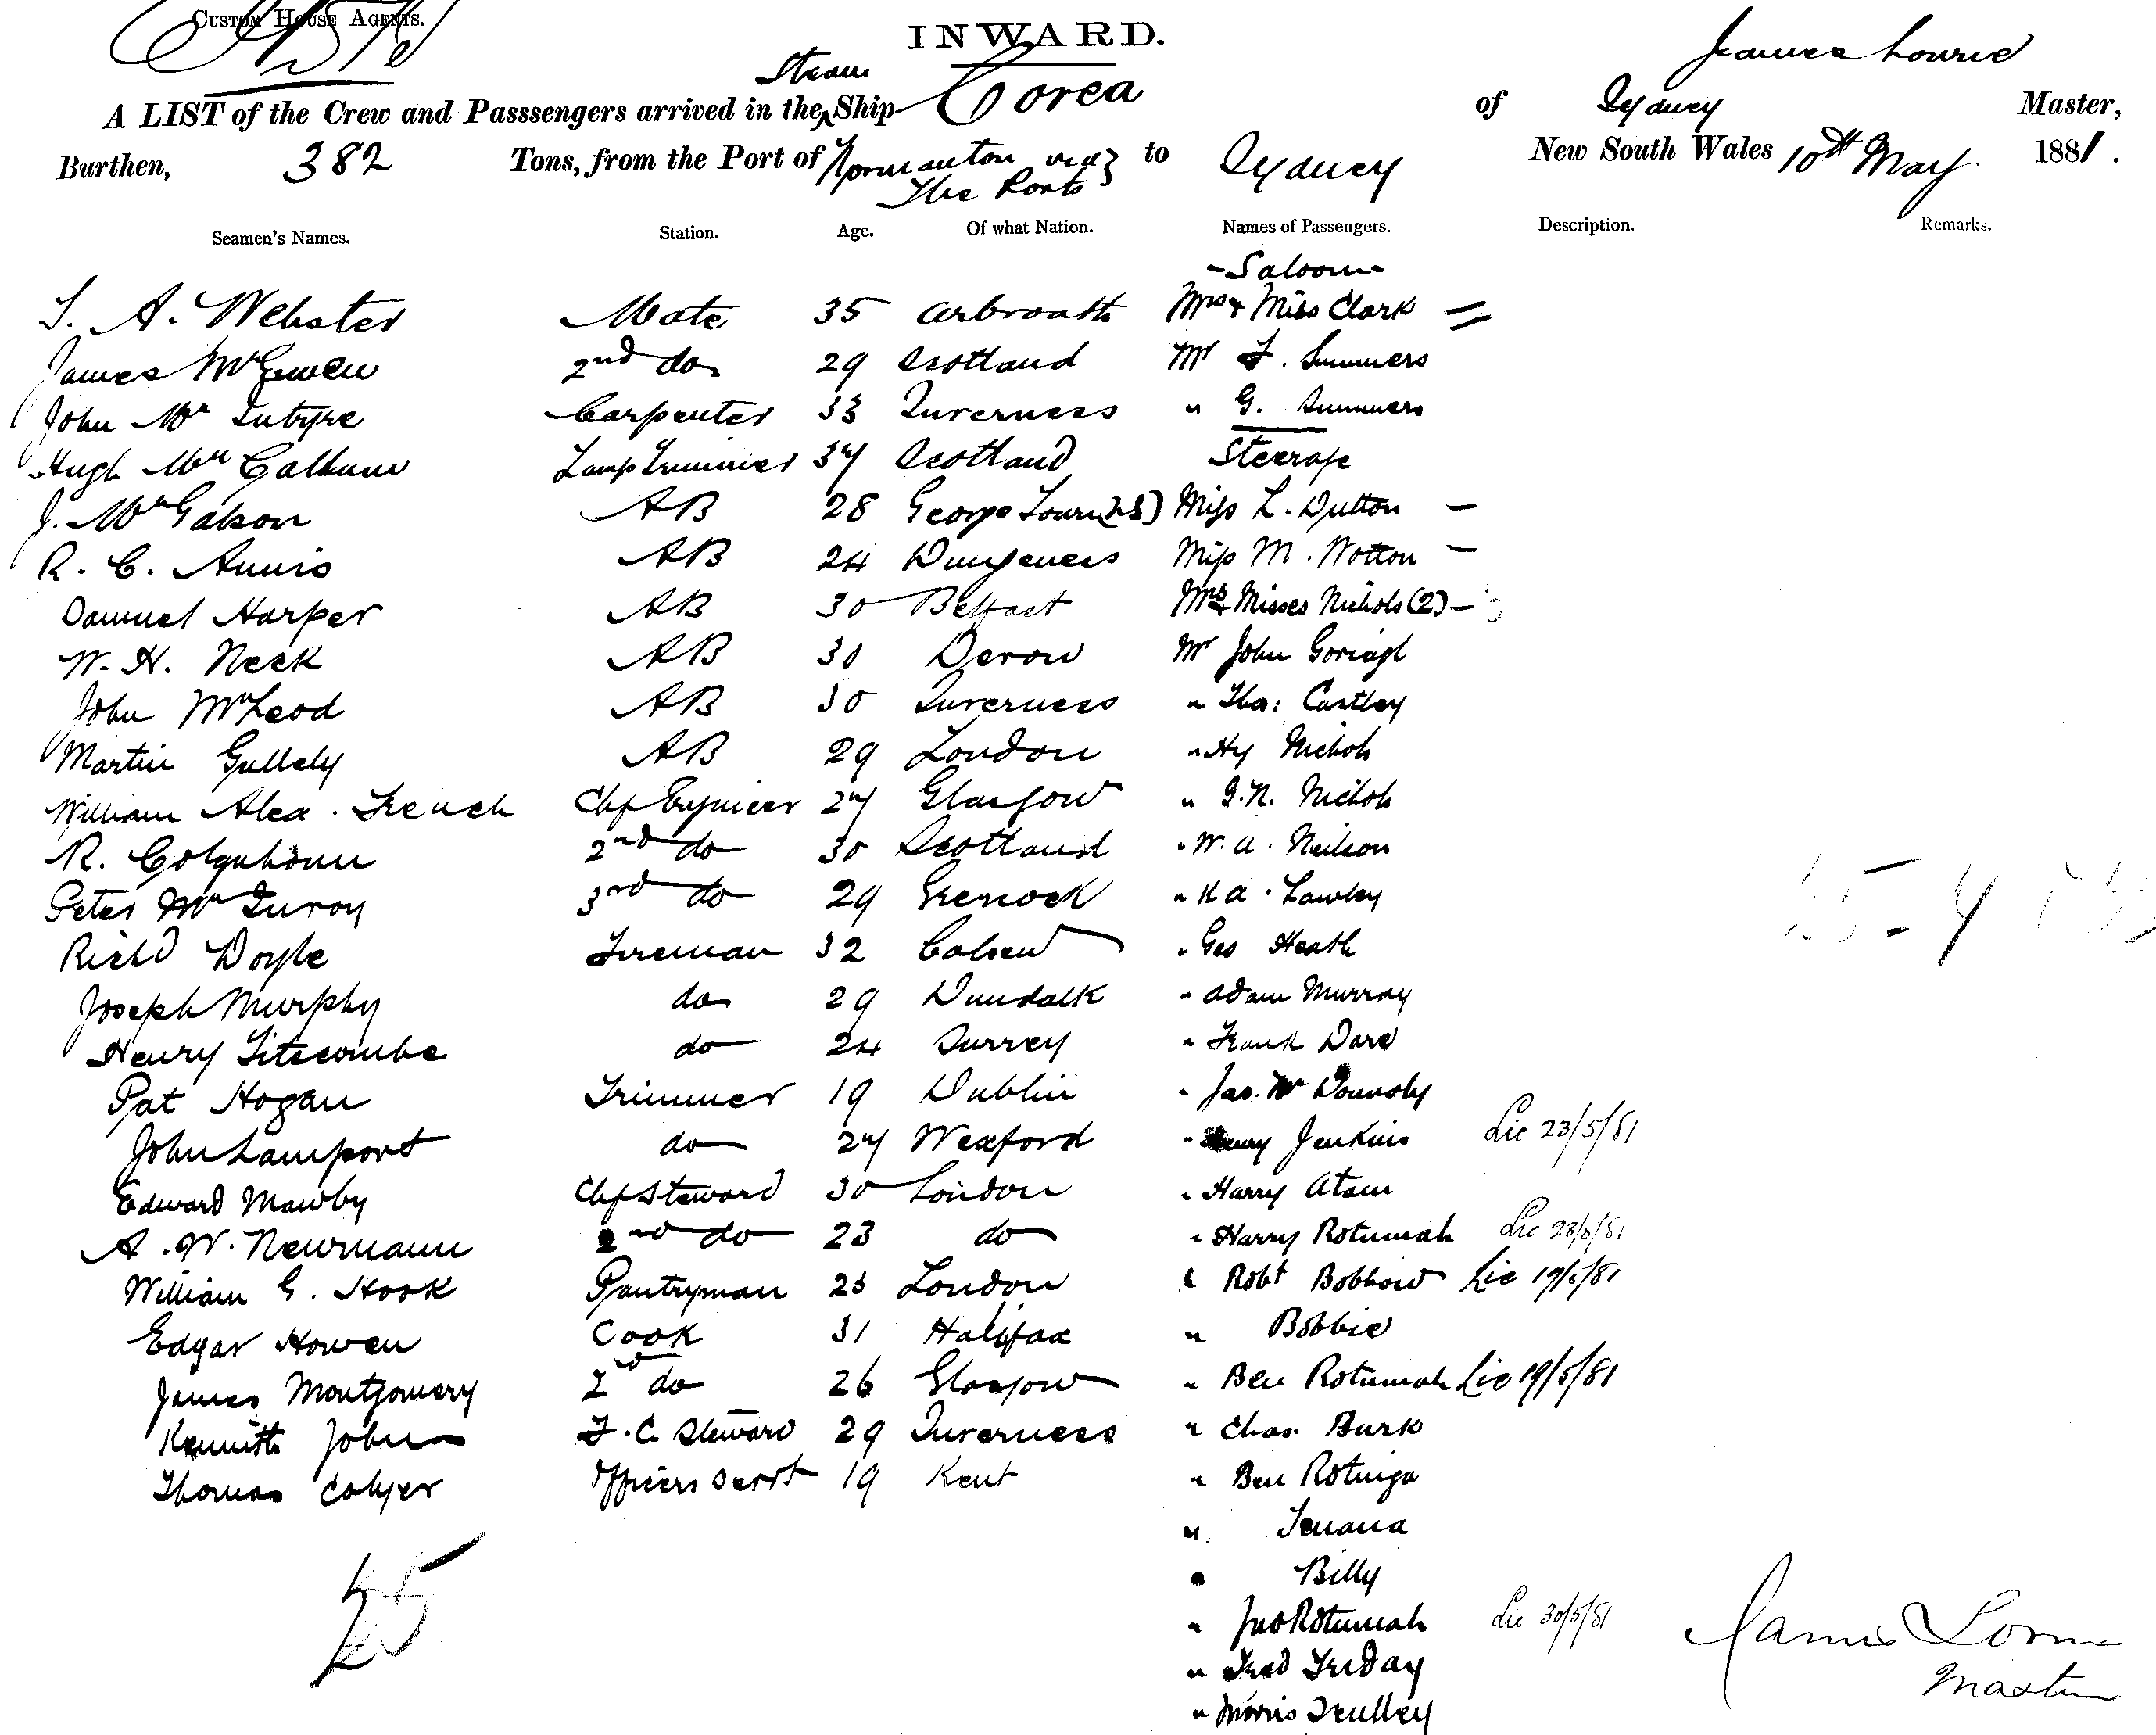 CUSTOM HOUSE AGENTS.
INWARD.
James Lowrie
Steam
A LIST of the Crew and Passsengers arrived in the Ship Corea of Sydney Master,
Burthen, 382 Tons, from the Port of Normanton via to Sydney New South Wales 10th May 1881.
The Ports
Seamen's Names. Station. Age. Of what Nation. Names of Passengers. Description. Remarks.
- Saloon -
A. Webster Mate 35 Arbroath Mrs & Miss Clark =
James McEwen 2nd do 29 Scotland Mr F. Summers
John Mc Intyre Carpenter 33 Inverness " G. Summers
Steerage
Hugh Mc Callum Lamp Trimmer 34 Scotland
J. Mc AB 28 George Town Miss L. Dutton -
R. C. Annis AB 24 Dungeness Miss M. Wotton -
Samuel Harper AB 30 Belfast Mrs & Misses Nichols (2) -
W. H. Neck AB 30 Devon Mr John
John McLeod AB 30 Inverness " Thos: Castley
Martin AB 29 London " Hy Nichols
William Alex. French Chf Engineer 27 Glasgow " Nichols
R. Colquhoun 2nd do 30 Scotland " W. A. Neilson
Peter Mc 3rd do 29 Greenock " Lawley
Richd Doyle Fireman 32 " Geo Heath
Joseph Murphy do 29 Dundalk " Adam Murray
Henry Titecombe do 24 Surrey " Frank Dare
Pat Hogan Trimmer 19 Dublin " Jas. Mc
John Lamport do 27 Wexford " Henry Jenkins Lic 23/5/81
Edward Mawby Chf Steward 30 London " Harry Atam
A. W. Newmann 2nd do 23 do " Harry Rotumah Lic 23/5/81
William G. Hook Pantryman 23 London " Robt Lic 19/5/81
Edgar Howen Cook 31 Halifax " Bobbie
James Montgomery 2nd do 26 Glasgow " Ben Rotumah Lic 19/5/81
Kennith John F. C. Steward 29 Inverness " Chas. Burk
Thomas Colyer Officers Servt 19 Kent " Ben
" Tenana
" Billy
25
" Jno Rotumah Lic 30/5/81
James
" Fred Friday
Master
" Morris